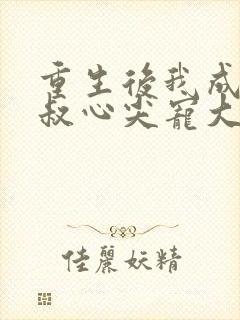 重生後我成
叔心尖寵大
佳麗妖精